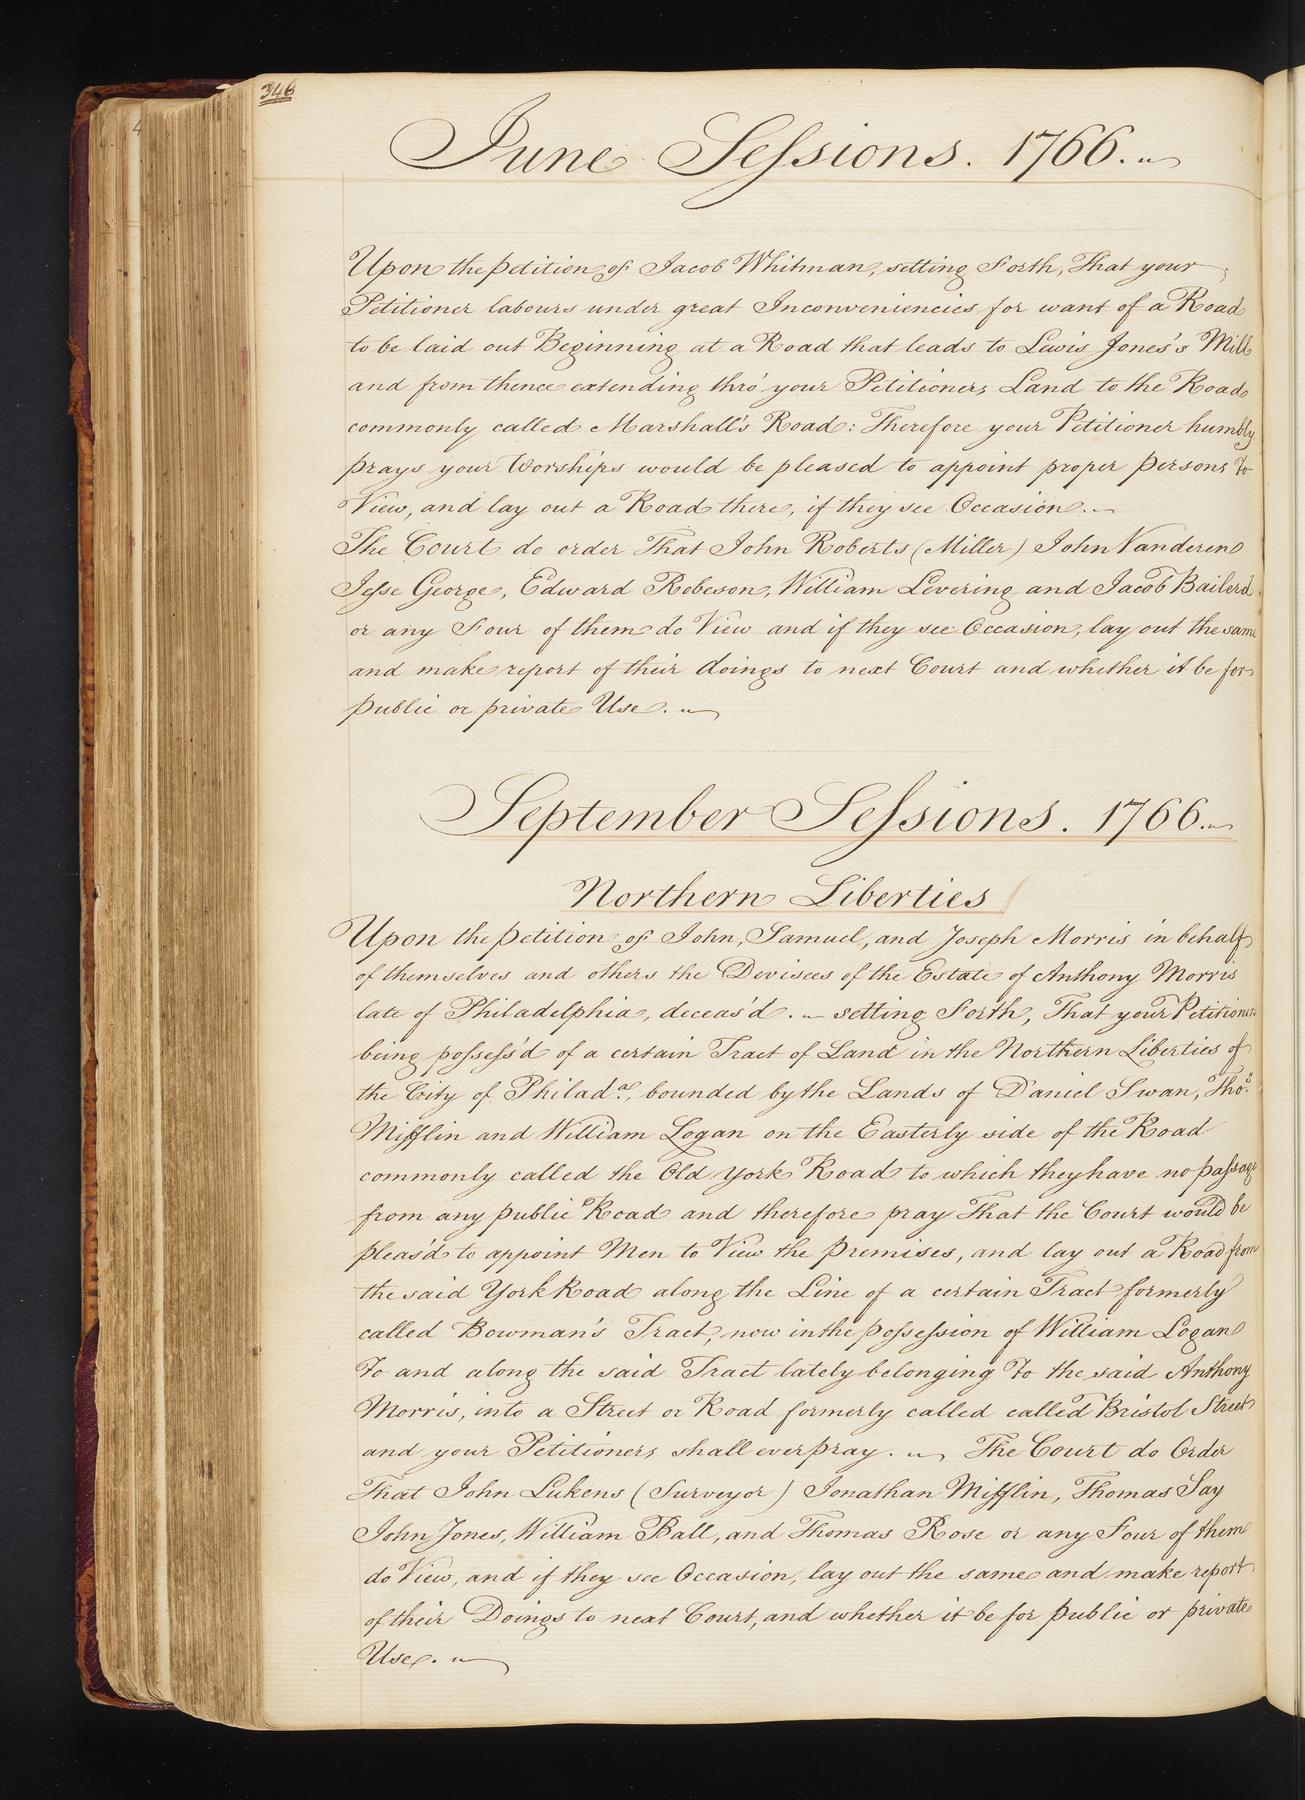 346
June Sessions. 1766.
Upon the petition of Jacob Whitman, setting Forth, That your
Petitioner labours under great Inconveniencies for want of a Road
to be laid out Beginning at a Road that leads to Lewis Jones's Mill
and from thence extending thro' your Petitioners Land to the Road
commonly called Marshall's Road: Therefore your Petitioner humbly
prays your Worships would be pleased to appoint proper persons to
View, and lay out a Road there, if they see Occasion.
The Court do order That John Roberts (Miller) John Vanderen
Jesse George, Edward Robeson, William Levering and Jacob Bailerd
or any Four of them do View and if they see Occasion, lay out the same
and make report of their doings to next Court and whether it be for
public or private Use.
September Sessions. 1766.
Northern Liberties
Upon the petition of John, Samuel, and Joseph Morris in behalf
of themselves and others the Devisees of the Estate of Anthony Morris
late of Philadelphia, deceas'd. setting Forth, That your Petitioners
being possess'd of a certain Tract of Land in the Northern Liberties of
the City of Philad.a, bounded by the Lands of Daniel Swan, Tho.s
Mifflin and William Logan on the Easterly side of the Road
commonly called the Old York Road to which they have no passage
from any public Road and therefore pray That the Court would be
pleas'd to appoint Men to View the premises, and lay out a Road from
the said York Road along the Line of a certain Tract formerly
called Bowman's Tract, now in the possession of William Logan
To and along the said Tract lately belonging To the said Anthony
Morris, into a Street or Road formerly called called Bristol Street
and your Petitioners shall ever pray. The Court do Order
That John Lukens (Surveyor) Jonathan Mifflin, Thomas Say
John Jones, William Ball, and Thomas Rose or any Four of them
do View, and if they see Occasion, lay out the same and make report
of their Doings to next Court, and whether it be for public or private
Use.